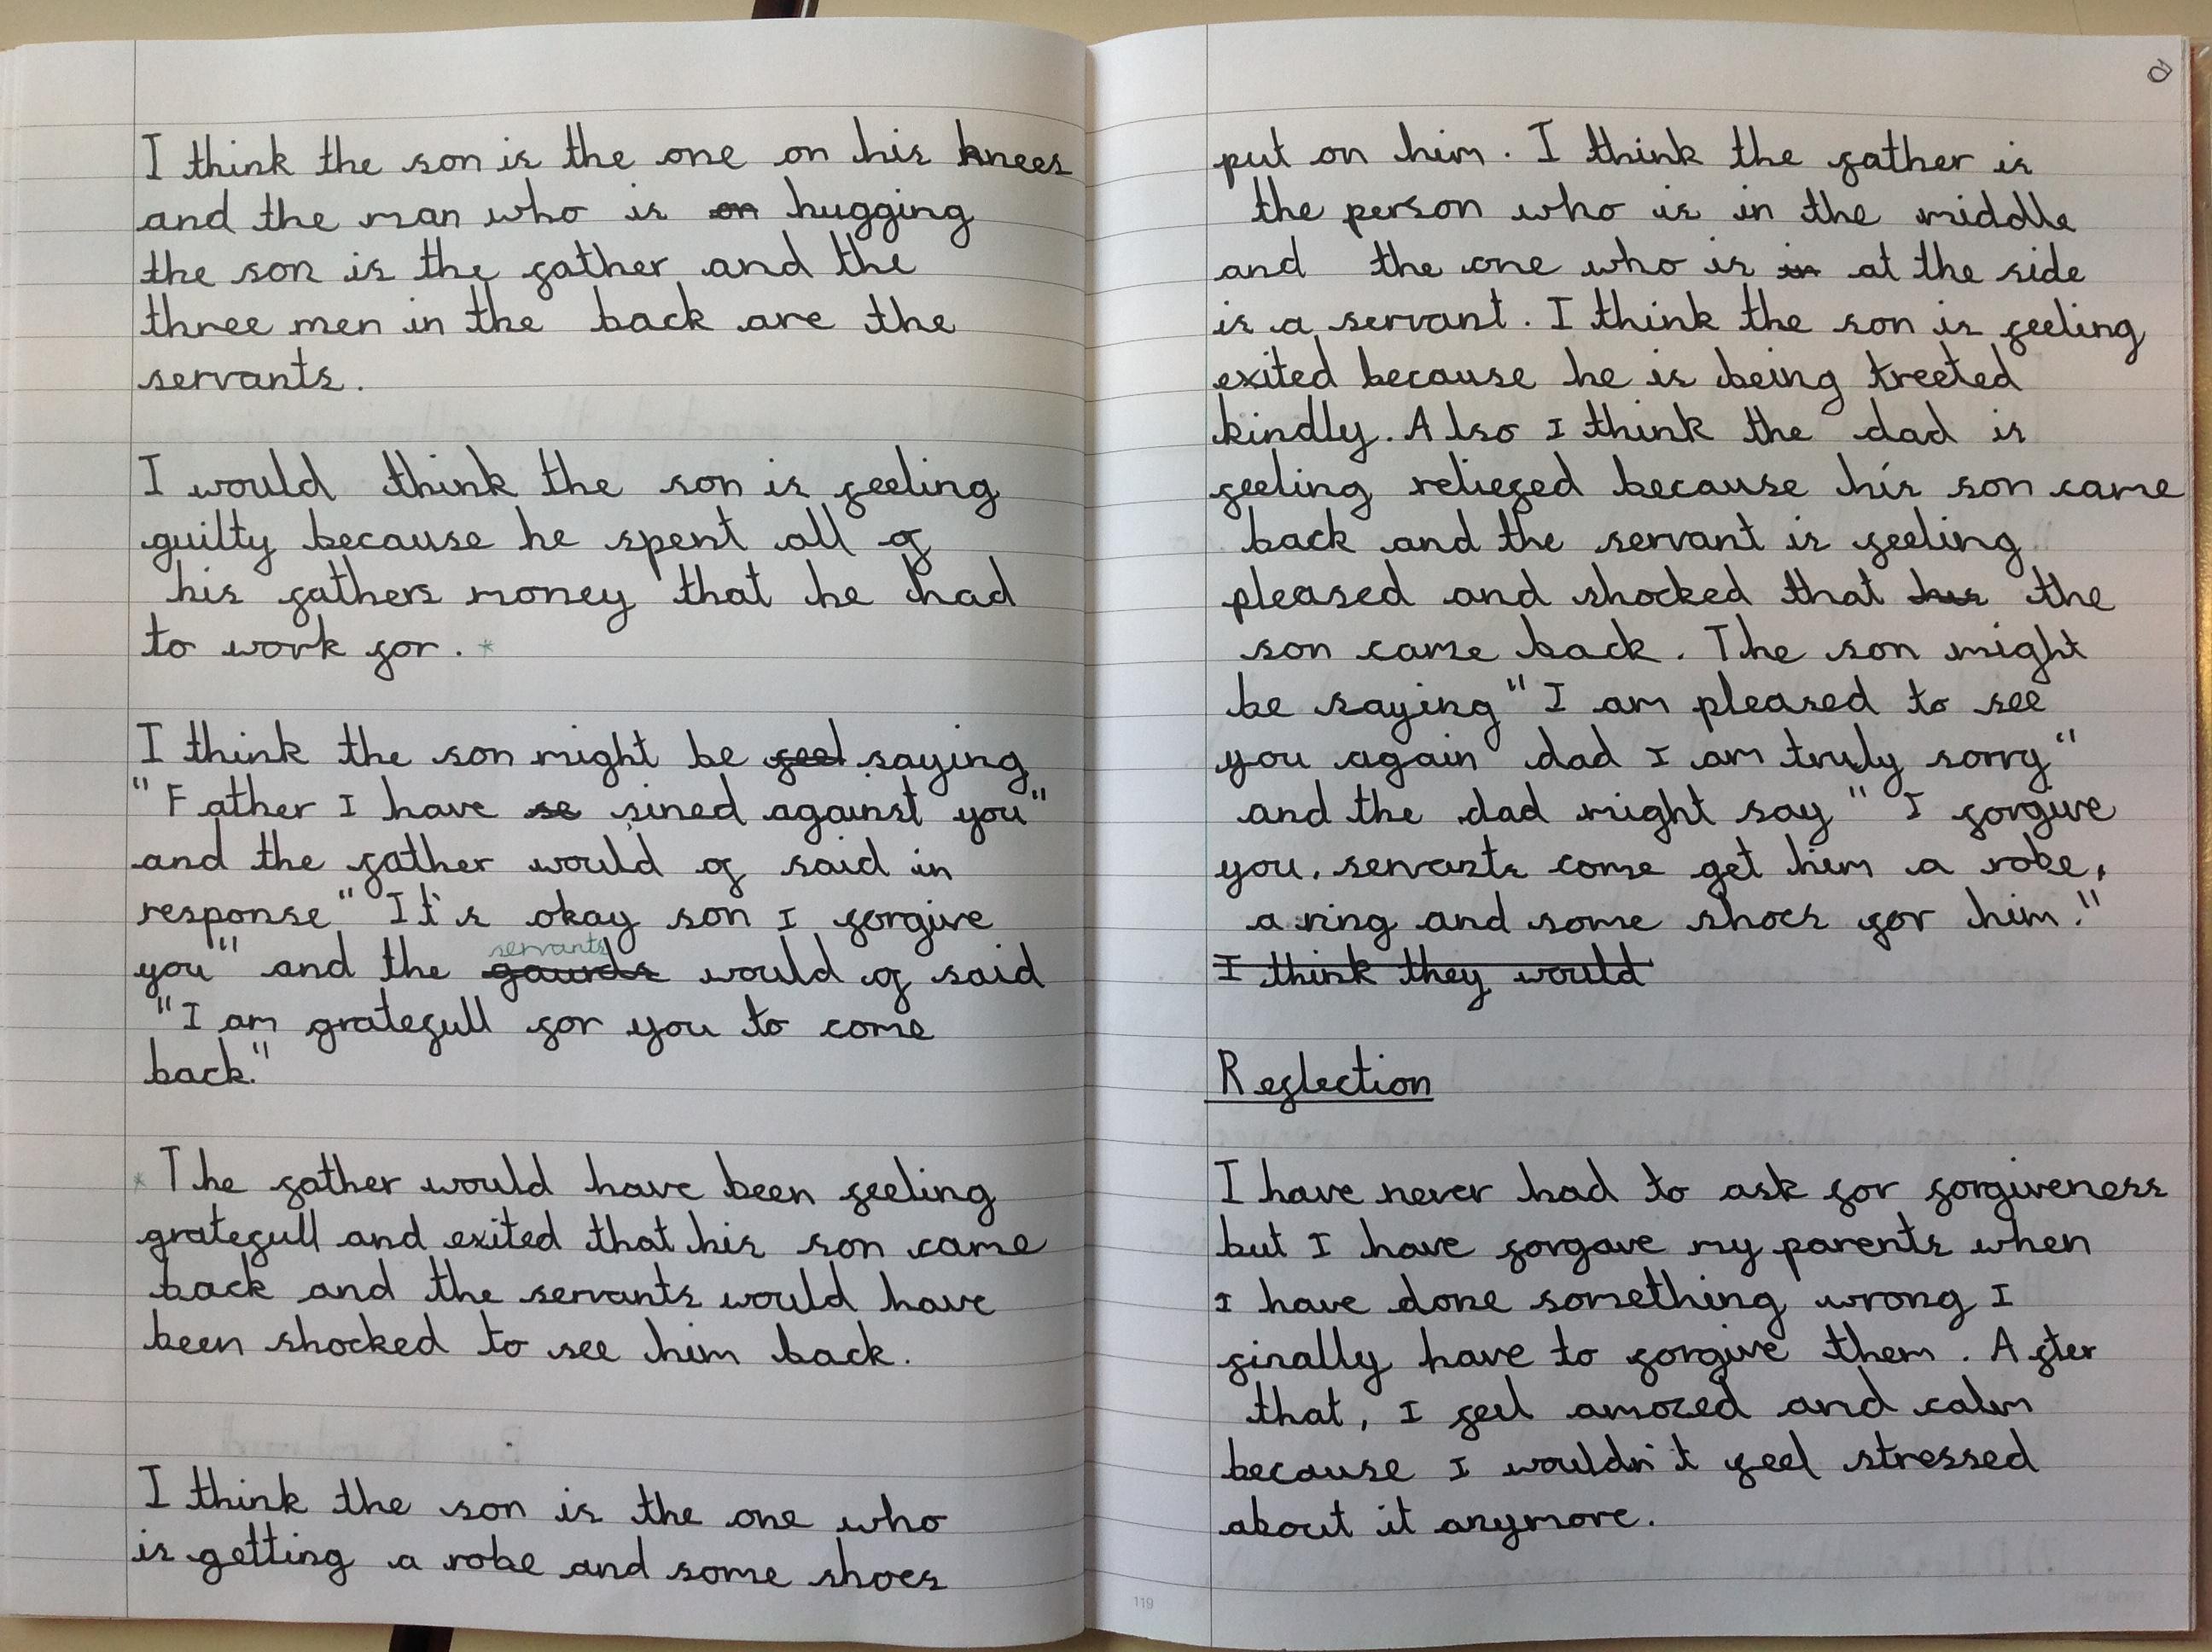 I think the son is the one on his knees
and the man who is on hugging
the son is the father and the
three men in the back are the
servants.
I would think the son is feeling
guilty because he spent all of
his fathers money that he had
to work for. *
I think the son might be feel saying
"Father I have se sined against you"
and the father would of said in
response" It's okay son I forgive
servants
you" and the gaurds would of said
"I am gratefull for you to come
back."
* The father would have been feeling
gratefull and exited that his son came
back and the servants would have
been shocked to see him back.
I think the son is the one who
is getting a robe and some shoes
put on him. I think the father is
the person who is in the middle
and the one who is in at the side
is a servant. I think the son is feeling
exited because he is being treeted
kindly. Also I think the dad is
feeling reliefed because his son came
back and the servant is feeling
pleased and shocked that his the
son came back. The son might
be saying "I am pleased to see
you again dad I am truly sorry"
and the dad might say " I forgive
you, servants come get him a robe,
a ring and some shoes for him."
I think they would
Reflection
I have never had to ask for forgiveness
but I have forgave my parents when
I have done something wrong I
finally have to forgive them. After
that, I feel amazed and calm
because I wouldn't feel stressed
about it anymore.
119